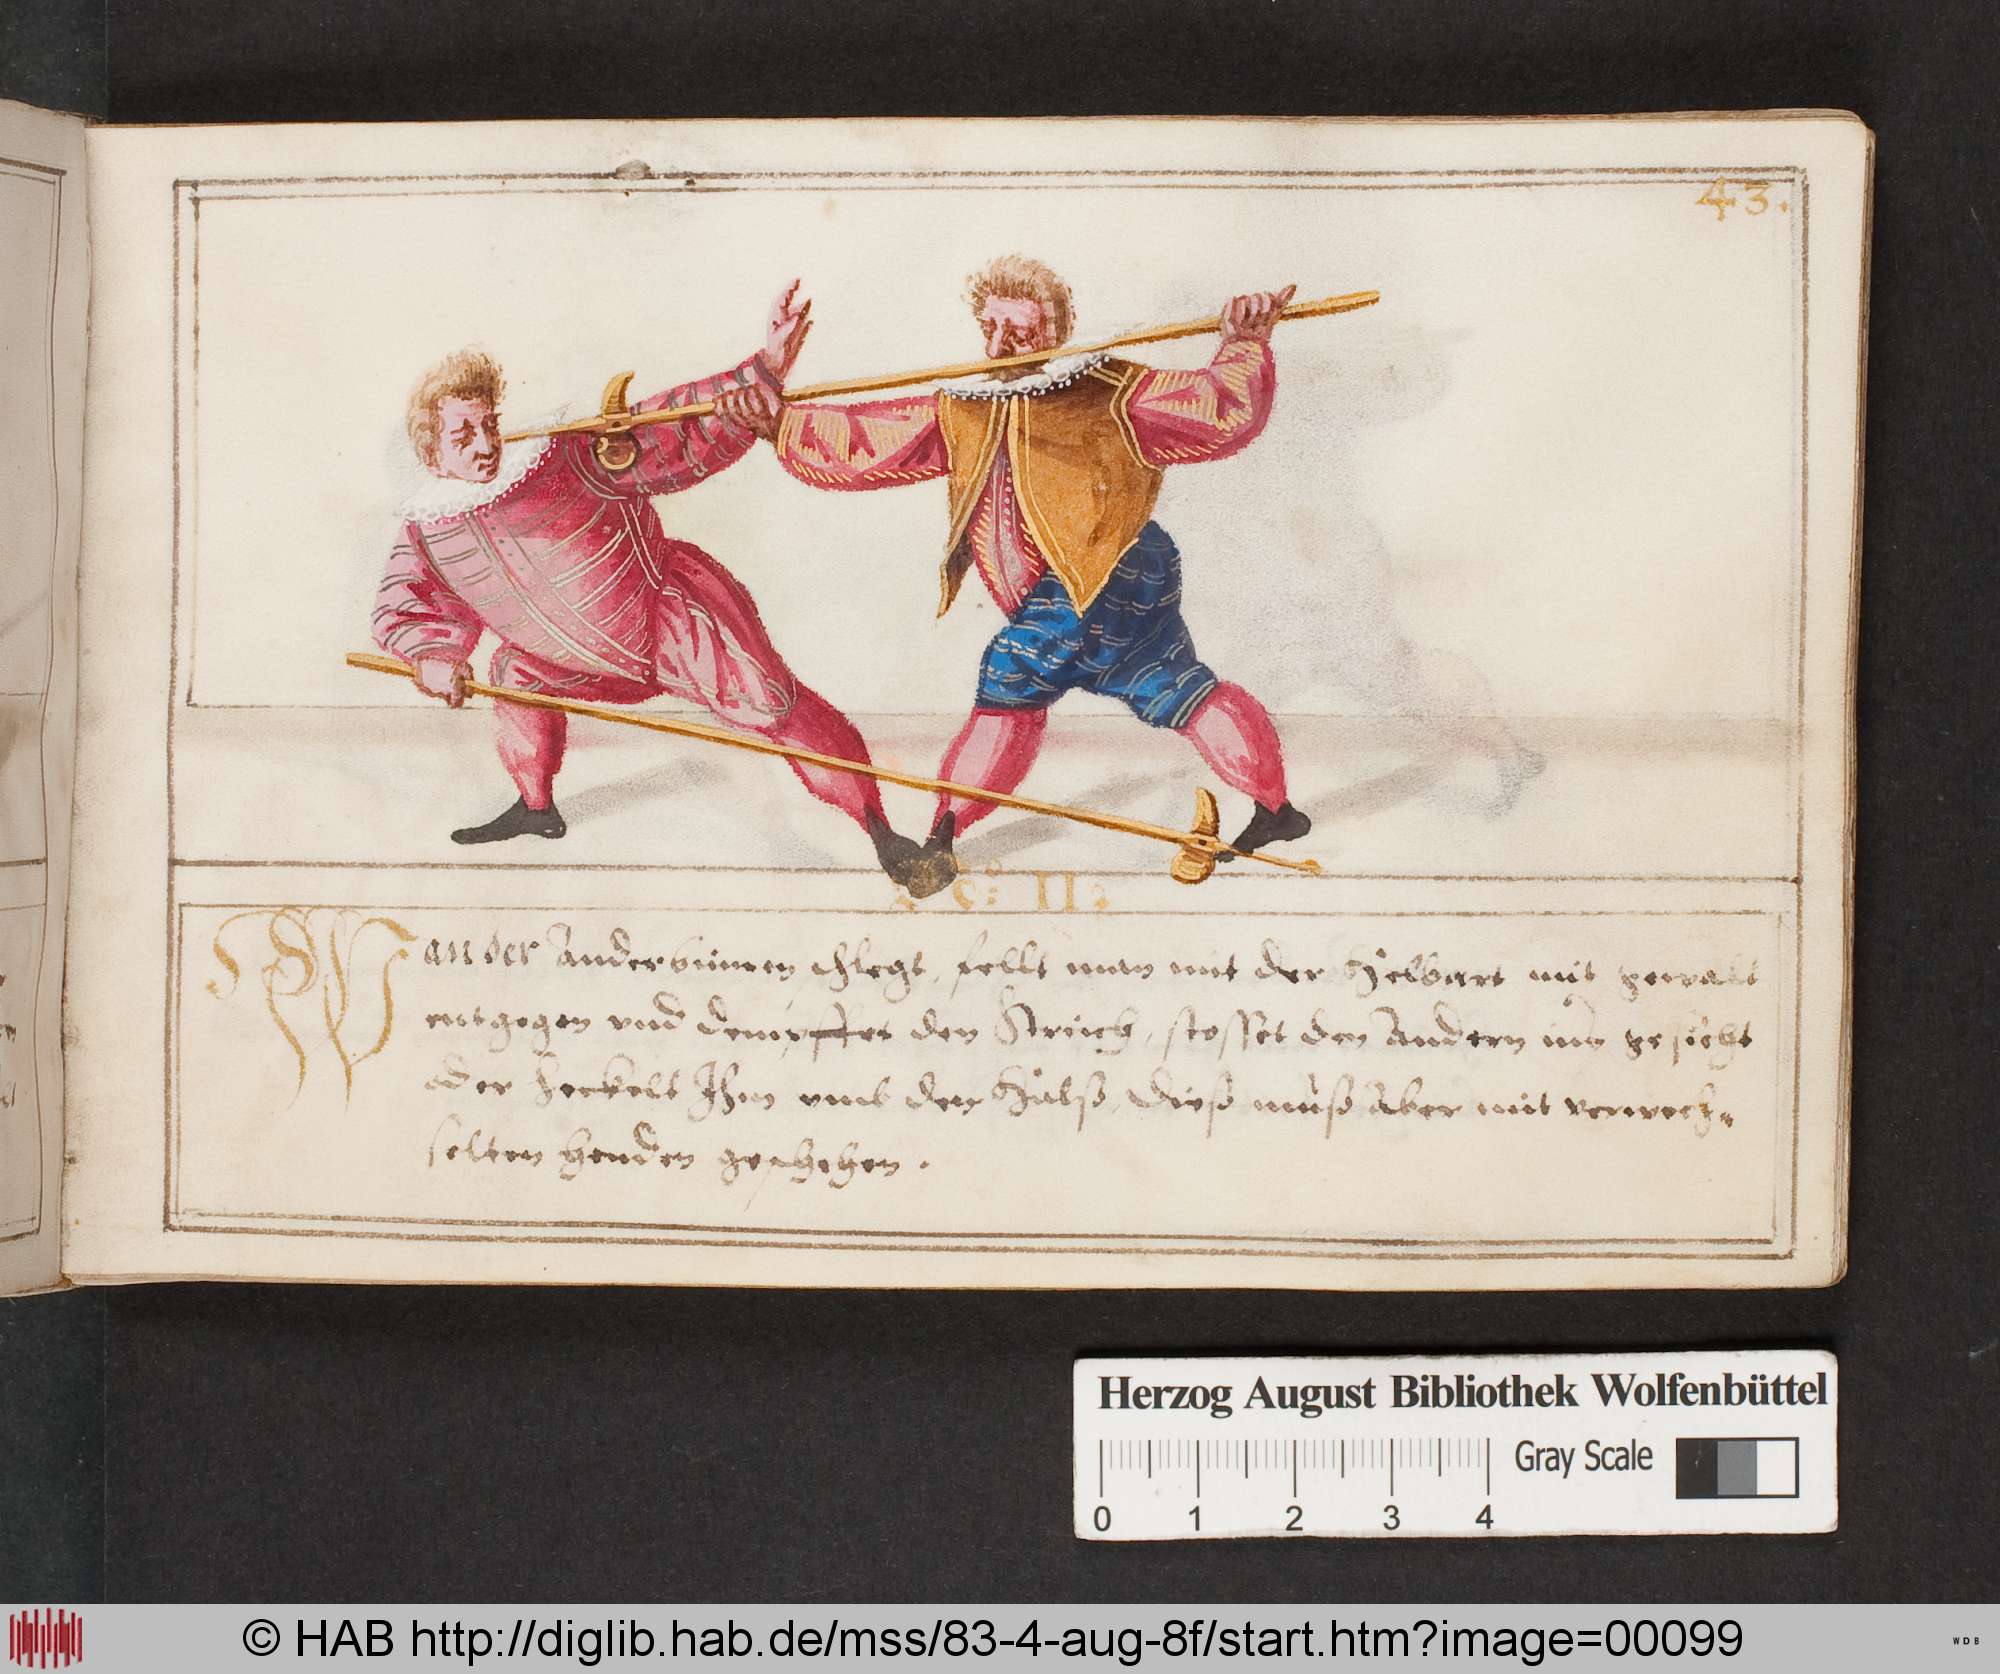 43.
: C: II :
Wan der Ander binnen schlegt, fellt man mit der Helbart mit gewalt
entgegen vnd dempffet den Streich, stosset den Andern ins gesicht
oder heckelt Ihm vmb den Halß, Dieß muß aber mit verwech-
selten henden geschehen.
Herzog August Bibliothek Wolfenbüttel
Gray Scale
0 1 2 3 4
© HAB http://diglib.hab.de/mss/83-4-aug-8f/start.htm?image=00099
WDB